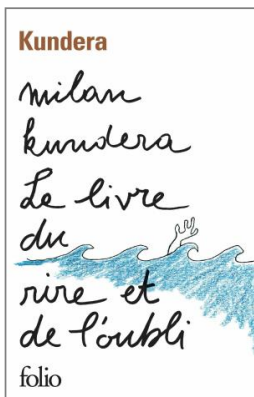 Kundera
milan
kundera
Le livre
du
rire et
de l'oubli
folio